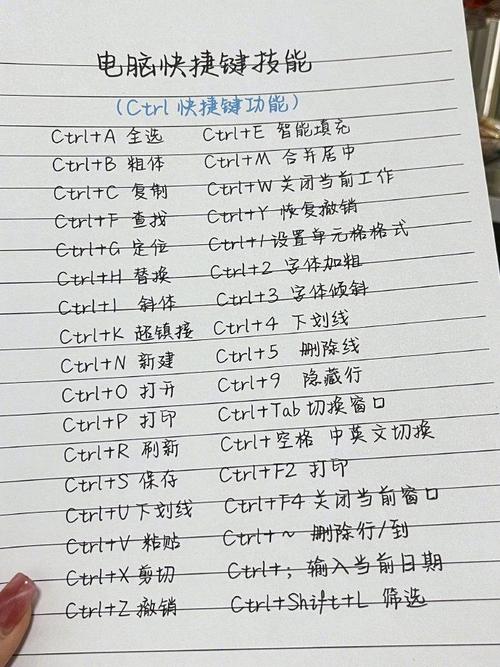 电脑快捷键技能
(Ctrl 快捷键功能)
Ctrl+A 全选 Ctrl+E 智能填充
Ctrl+B 粗体 Ctrl+M 合并居中
Ctrl+C 复制 Ctrl+W 关闭当前工作
Ctrl+F 查找 Ctrl+Y 恢复撤销
Ctrl+G 定位 Ctrl+1 设置单元格格式
Ctrl+H 替换 Ctrl+2 字体加粗
Ctrl+I 斜体 Ctrl+3 字体倾斜
Ctrl+K 超镇接 Ctrl+4 下划线
Ctrl+N 新建 Ctrl+5 删除线
Ctrl+O 打开 Ctrl+9 隐藏行
Ctrl+P 打印 Ctrl+Tab 切换窗口
Ctrl+R 刷新 Ctrl+空格 中英文切换
Ctrl+S 保存 Ctrl+F2 打印
Ctrl+U 下划线 Ctrl+F4 关闭当前窗口
Ctrl+V 粘贴 Ctrl+~ 删除行/到
Ctrl+X 剪切 Ctrl+; 输入当前日期
Ctrl+Z 撤销 Ctrl+Shift+L 筛选